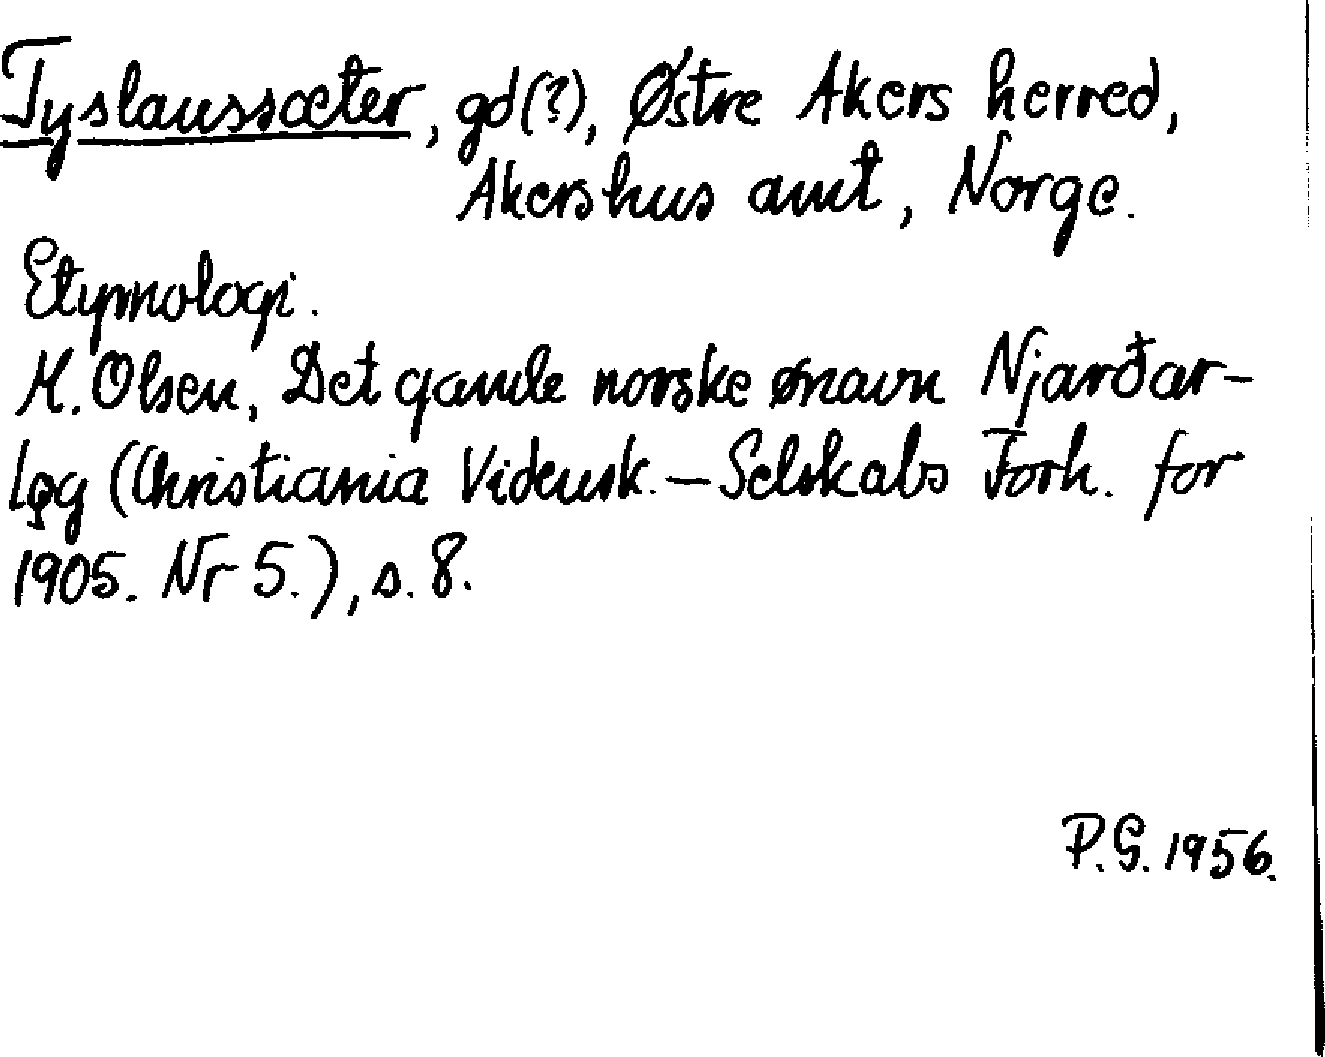 Tyslaussæter, gd(?), Østre Akers herred,
Akershus amt, Norge.
Etymologi.
M. Olsen, Det gamle norske ønavn Njarðar-
lǫg (Christiania Vidensk.-Selskabs Forh. for
1905. Nr 5.), s. 8.
P.G. 1956.